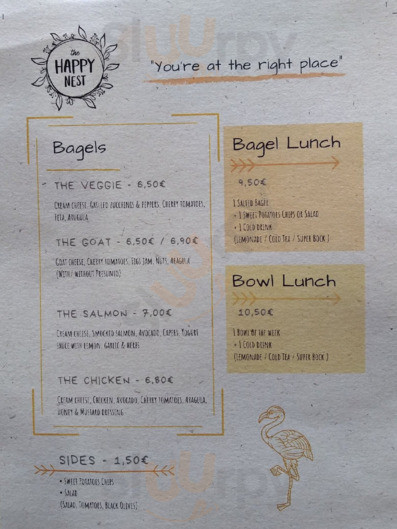 the
HAPPY
NEST
"You're at the right place"
Bagels
THE VEGGIE - 6,50€
Cream cheese, Grilled zucchinis & peppers, Cherry tomatoes,
Feta, Arugula
THE GOAT - 6,50€ / 6,90€
Goat cheese, Cherry tomatoes, Figs Jam, Nuts, Arugula
(With/ without Presunto)
THE SALMON - 7,00€
Cream cheese, Smocked salmon, Avocado, Capers, Yogurt
sauce with lemon, garlic & herbs
THE CHICKEN - 6,80€
Cream cheese, Chicken, Avocado, Cherry tomatoes, Arugula,
Honey & Mustard dressing
SIDES - 1,50€
• Sweet Potatoes Chips
• Salad
(Salad, Tomatoes, Black Olives)
Bagel Lunch
9,50€
1 Salted Bagel
+ 1 Sweet Potatoes Chips or Salad
+ 1 Cold drink
(Lemonade / Cold Tea / Super Bock )
Bowl Lunch
10,50€
1 Bowl of the week
+ 1 Cold drink
(Lemonade / Cold Tea - Super Bock )